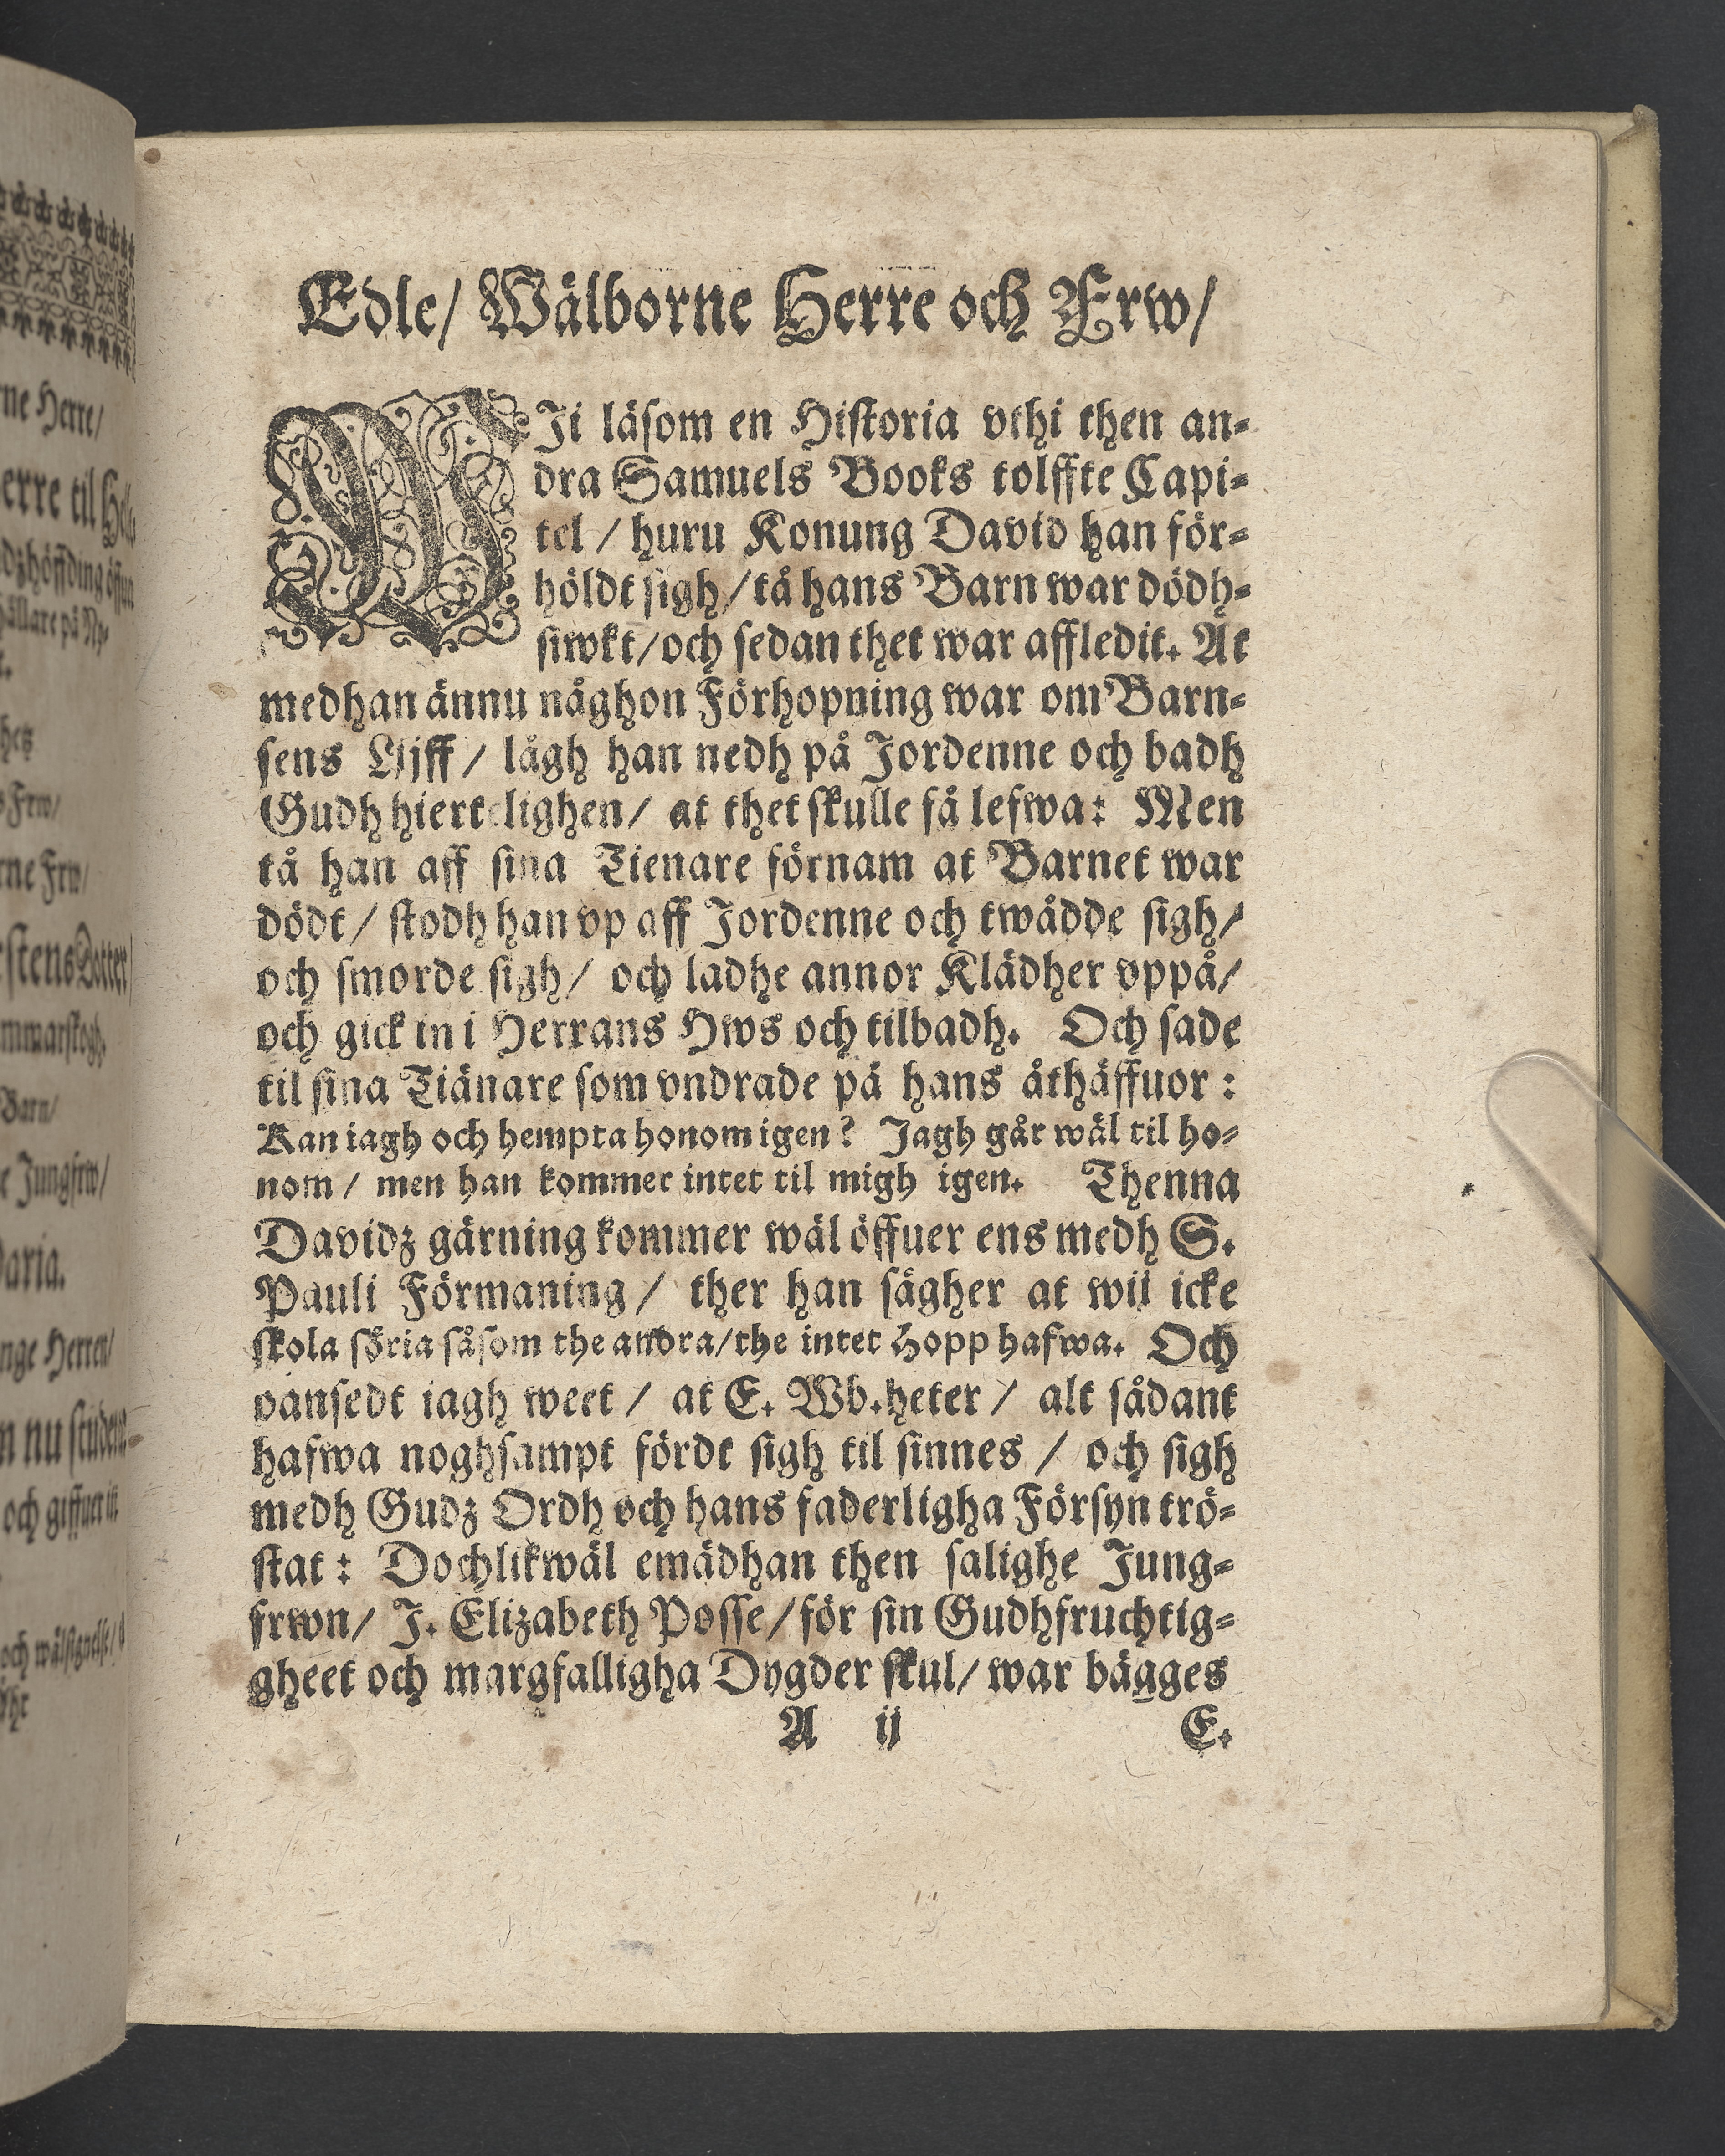 Edle/ Wälborne Herre och Frw/
WJi läsom en Historia vthi then an-
dra Samuels Books tolffte Capi-
tel / huru Konung David han för-
höldt sigh/ tå hans Barn war dödh-
siwkt/ och sedan thet war affledit. At
medhan ännu någhon Förhopning war om Barn-
sens Lijff / lågh han nedh på Jordenne och badh
Gudh hiertelighen/ at thet skulle få lefwa: Men
tå han aff sina Tienare förnam at Barnet war
dödt/ stodh han vp aff Jordenne och twådde sigh/
och smorde sigh/ och ladhe annor Klädher vppå/
och gick in i Herrans Hws och tilbadh. Och sade
til sina Tiänare som vndrade på hans åthäffuor:
Kan iagh och hempta honom igen? Jagh går wäl til ho-
nom / men han kommer intet til migh igen. Thenna
Davidz gärning kommer wäl öffuer ens medh S.
Pauli Förmaning / ther han sägher at wij icke
skola söria såsom the andra/ the intet Hopp hafwa. Och
oansedt iagh weet / at E. Wb.heter / alt sådant
hafwa noghsampt fördt sigh til sinnes / och sigh
medh Gudz Ordh och hans faderligha Försyn trö-
stat: Dochlikwäl emädhan then salighe Jung-
frwn/ J. Elizabeth Posse/ för sin Gudhfruchtig-
gheet och margfalligha Dygder skul/ war bägges
A ij E.